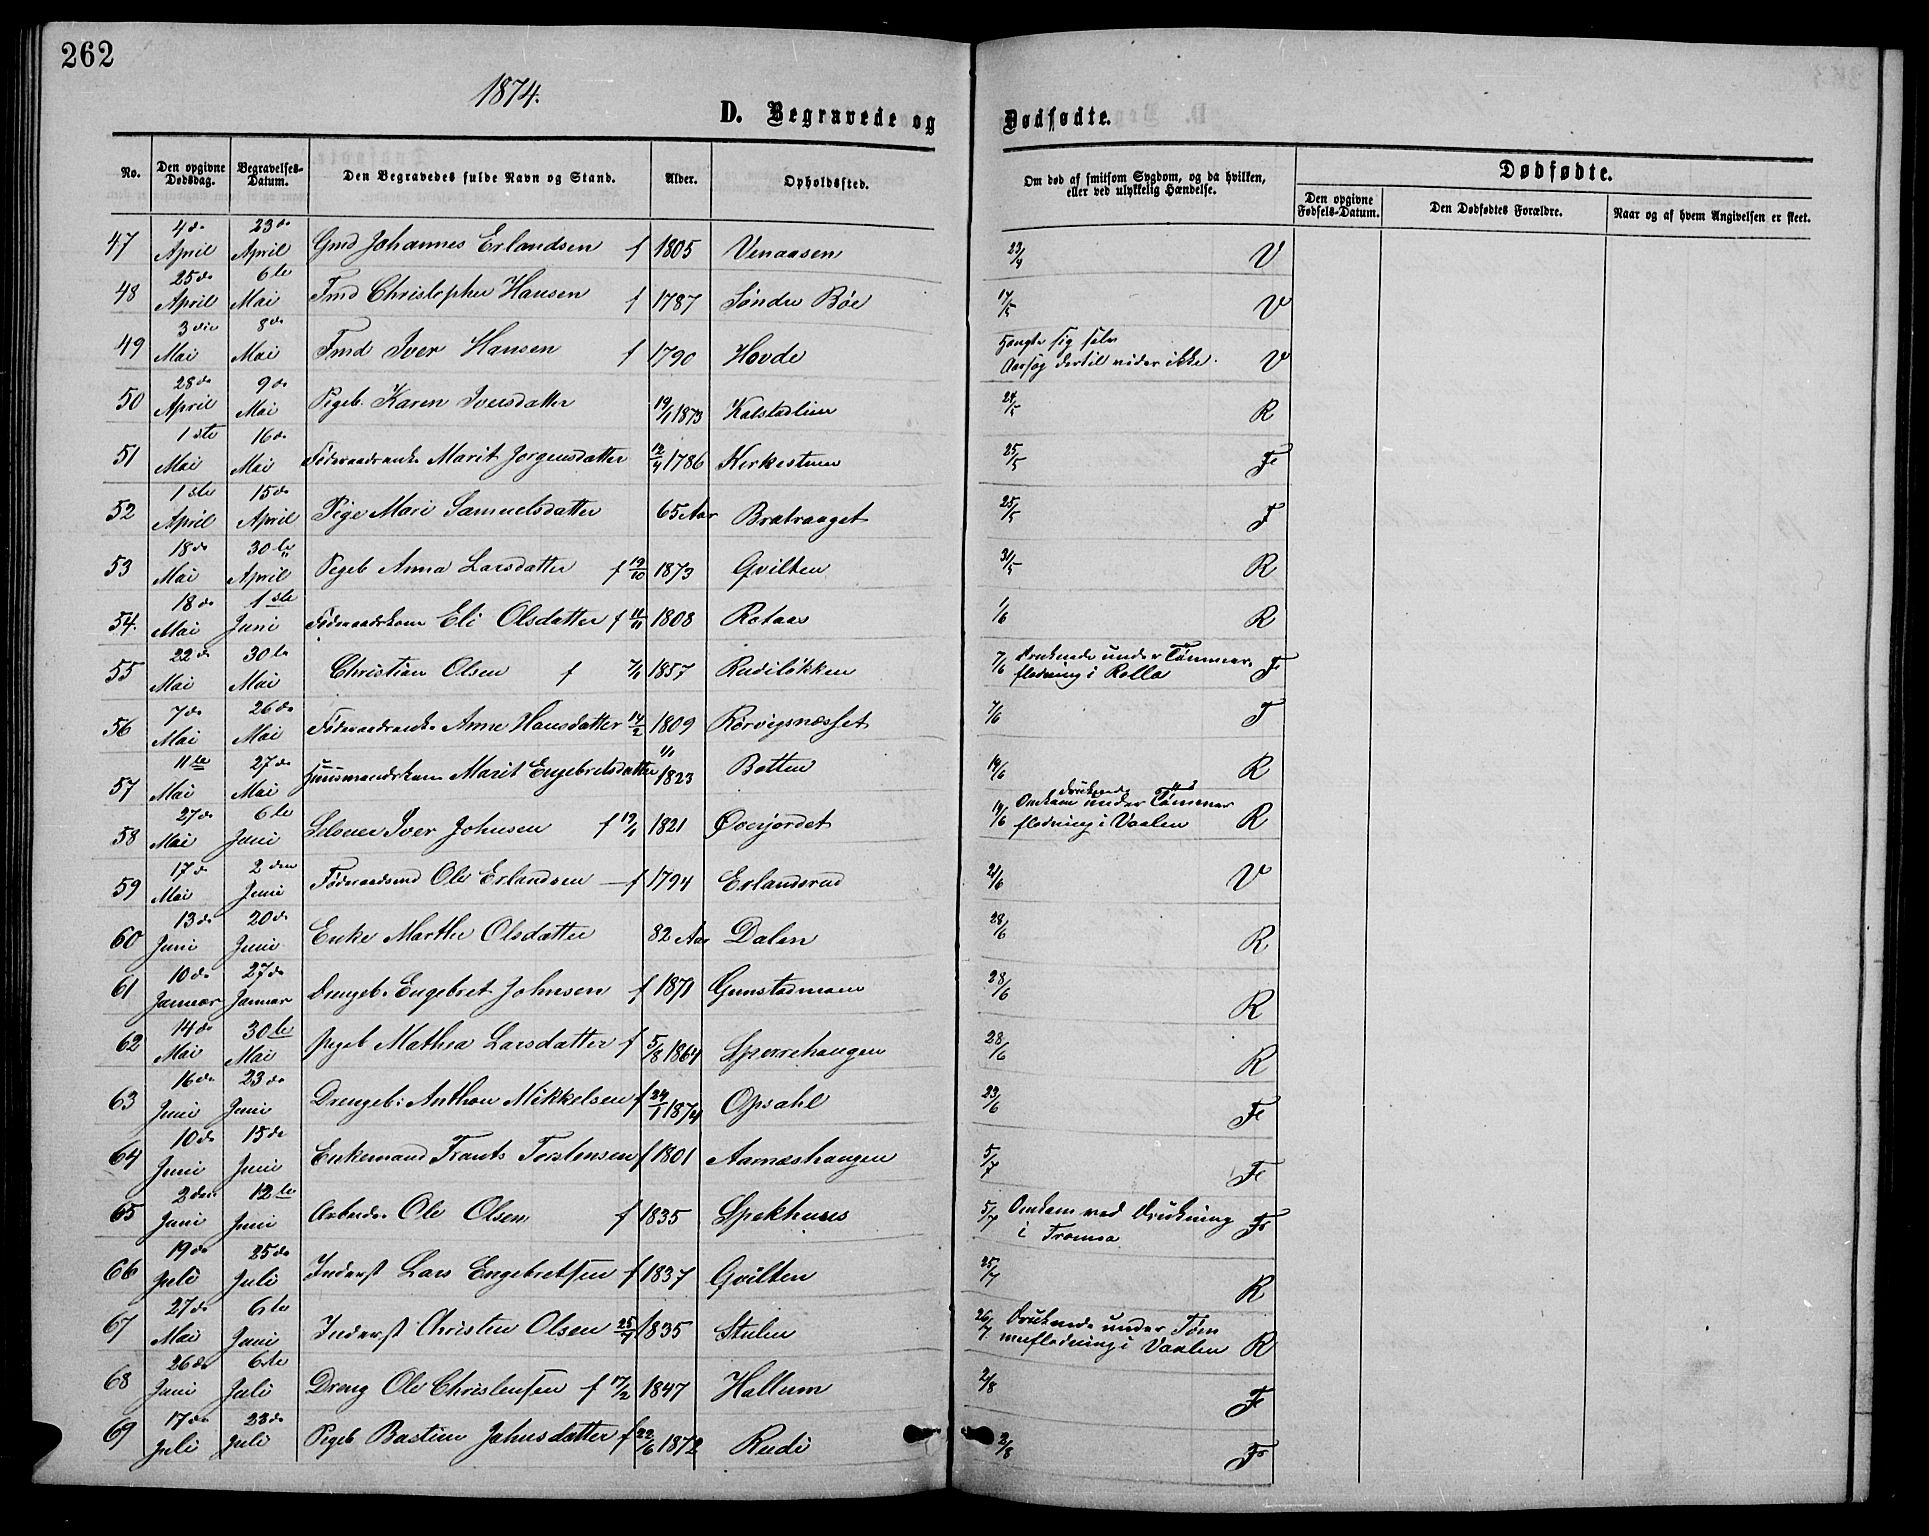 262
1874.
D. Begravede og Dødfødte.
No. Den opgivne Dødsdag. Begravelses-Datum. Den Begravedes fulde Navn og Stand. Alder. Opholdssted. Om død af smitsom Sygdom, og da hvilken, eller ved ulykkelig Hændelse. Dødfødte.
Den opgivne Fødsels-Datum. Den Dødfødtes Forældre. Naar og af hvem Angivelsen er skeet.
47 4de April 23de April Gmd Johannes Erlandsen f 1805 Venaasen 23/4 V
48 25de April 6te Mai Fmd Christopher Hansen f 1787 Søndre Bøe 17/5 V
49 3die Mai 8de Mai Fmd Iver Hansen f 1790 Hovde Hængte sig selv Aarsag dertil vides ikke. V
50 28de April 9de Mai Pigeb. Karen Iversdatter 19/1 1873 Kolstadlien 24/5 R
51 1ste Mai 16de Mai Føderaadsenke Marit Jørgensdatter 12/4 1786 Kirkestuen 25/5 F
52 1ste April 15de April Pige Mari Samuelsdatter 65 Aar Bratvanget 25/5 F
53 18de Mai 30te April Pigeb Anna Larsdatter f 19/10 1873 Gvilten 31/5 R
54. 18de Mai 1ste Juni Føderaadskone Eli Olsdatter f 11/11 1808 Rotaae 1/6 R
55 22de Mai 30te Mai Christian Olsen f 7/1 1857 Rudiløkken 7/6 Druknede under Tømmerflødning i Rolla F
56 7de Mai 26de Mai Føderaadsenke Anne Hansdatter 14/2 1809 Kørvigsnæsset 7/6 F
57 11te Mai 27de Mai Huusmandskone Marit Engebretsdatter 1/1 1823 Botten 14/6 R
58 27de Mai 6te Juni Selveier Iver Johnsen f 19/1 1821 Øverjordet 14/6 Omkom druknede under Tømmerflødning i Vaalen R
59 17de Mai 2den Juni Føderaadsmd Ole Erlandsen f 1794 Erlandsrud 21/6 V
60 13de Juni 20de Juni Enke Marthe Olsdatter 82 Aar Dalen 28/6 R
61 10de Januar 27de Januar Drengeb. Engebret Johnsen f 1871 Gunstadmoen 28/6 R
62 14de Mai 30te Mai Pigeb Mathea Larsdatter f 5/8 1864 Sperrehaugen 28/6 R
63 16de Juni 23de Juni Drengeb: Anthon Mikkelsen f 24/1 1874 Opsahl 23/6 F
64 10de Juni 15de Juni Enkemand Frants Torstensen f 1801 Aarnæshaugen 5/7 F
65 2den Juni 12te Juni Arbeider Ole Olsen f 1835 Spekhuses 5/7 Omkom ved Drukning i Fromsa F
66 19de Juli 25de Juli Inderst Lars Engebretsen f 1837 Gvilten 25/7 R
67 27de Mai 6te Juni Inderst Christen Olsen 25/7 1835 Stulen 26/7 Druknede under Tømmerflødning i Vaalen R
68 26de Juni 6te Juli Dreng Ole Christensen f 17/2 1847 Hallum 2/8 F
69 17de Juli 23de Juli Pigeb Bastine Johnsdatter f 22/6 1872 Rudi 2/8 F